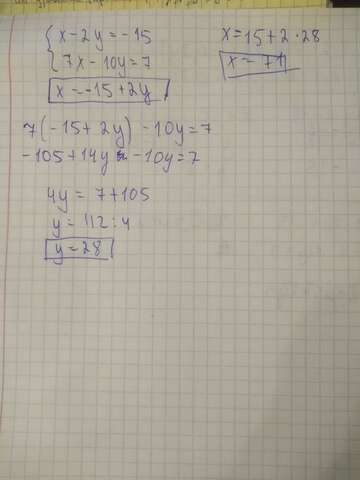 x-2y=-15
7x-10y=7
x=-15+2y
7(-15+2y)-10y=7
-105+14y-10y=7
4y=7+105
y=112:4
y=28
x=15+2·28
x=71